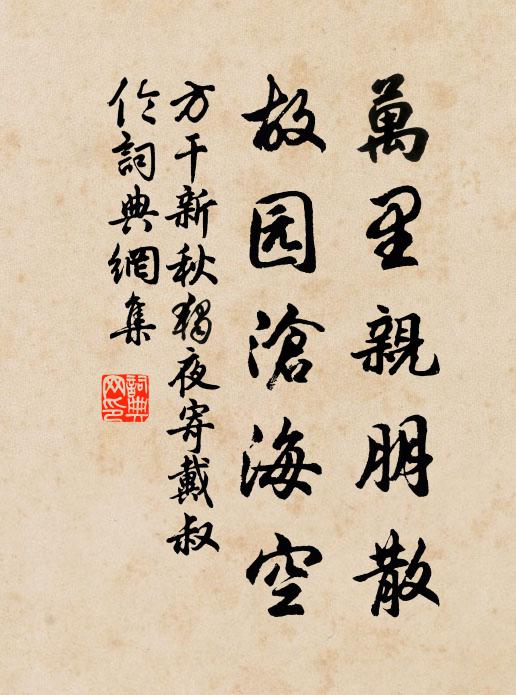 萬里親朋散
故园滄海空
方干新秋獨夜寄戴叔
伦詞典網集
詞典网印